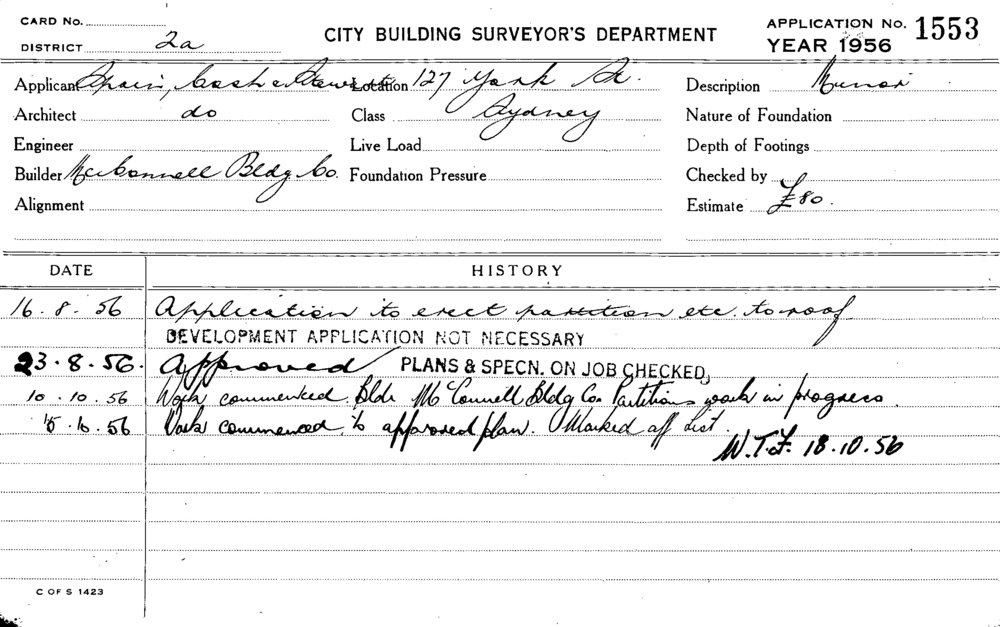 CARD No.
DISTRICT 2a
CITY BUILDING SURVEYOR'S DEPARTMENT
APPLICATION No. 1553
YEAR 1956
Applicant Spain, Cosh & Stewart Location 127 York St. Description Minor
Architect do Class Sydney Nature of Foundation
Engineer Live Load Depth of Footings
Builder McConnell Bldg. Co. Foundation Pressure Checked by
Alignment Estimate £80.
DATE HISTORY
16.8.56 Application to erect partition etc. to roof
DEVELOPMENT APPLICATION NOT NECESSARY
23.8.56. Approved PLANS & SPECN. ON JOB CHECKED,
10.10.56 Work commenced. Bldr McConnell Bldg Co. Partitions work in progress
15.10.56 Work commenced to approved plan. Marked off List.
W.T.F. 18.10.56
C OF S 1423